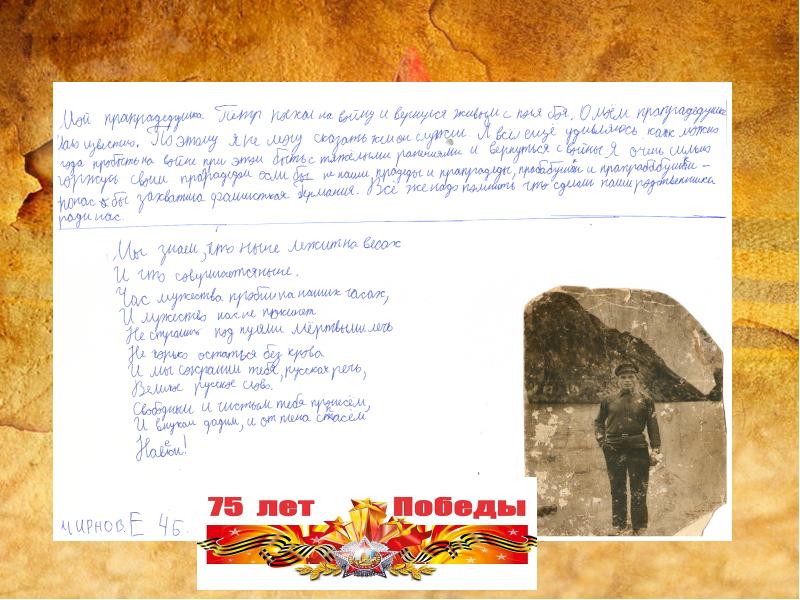 Мой прапрадедушка Пётр поехал на войну и вернулся живым с поля боя. О моём прапрадедушке
известно. Поэтому я не могу сказать кем он служил. Я всё ещё удивляюсь как можно
года пробыть на войне при этом быть с тяжёлыми ранениями и вернуться с войны. Я очень сильно
горжусь своим прапрадедом если бы не наши прадеды и прапрадеды, прабабушки и прапрабабушки –
нас бы захватила фашисткая Германия. Всё же надо помнить что сделали наши родственники
ради нас.
Мы знаем, что ныне лежит на весах
И что совершается ныне.
Час мужества пробил на наших часах,
И мужество нас не покинет
Не страшно под пулями мёртвыми лечь
Не горько остаться без крова
И мы сохраним тебя, русская речь,
Великое русское слово.
Свободным и чистым тебя пронесём,
И внукам дадим, и от плена спасём
Навеки!
Е 4Б.
75 лет Победы